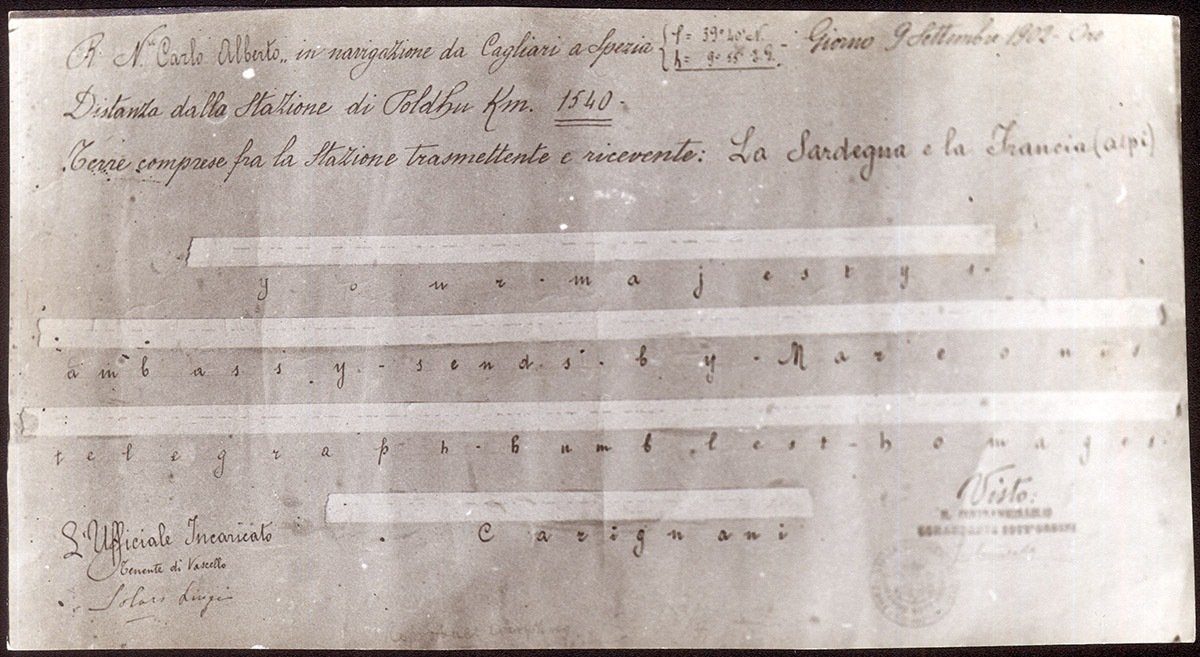 R. N. "Carlo Alberto" in navigazione da Cagliari a Spezia { f = 39° 40' N. - Giorno 9 Settembre 1902 - Ore
h = 9°
Distanza dalla Stazione di Poldhu Km. 1540 -
Terre comprese fra la Stazione trasmettente e ricevente: La Sardegna e la Francia (alpi)
y o u r - m a j e s t y s -
a m b a s s y - s e n d s - b y - M a r c o n i s
t e l e g r a p h - h u m b l e s t - h o m a g e s -
C a r i g n a n i
L'Ufficiale Incaricato
Tenente di Vascello
Solari Luigi
Visto:
IL CONTRAMMIRAGLIO
COMANDANTE SOTT'ORDINI